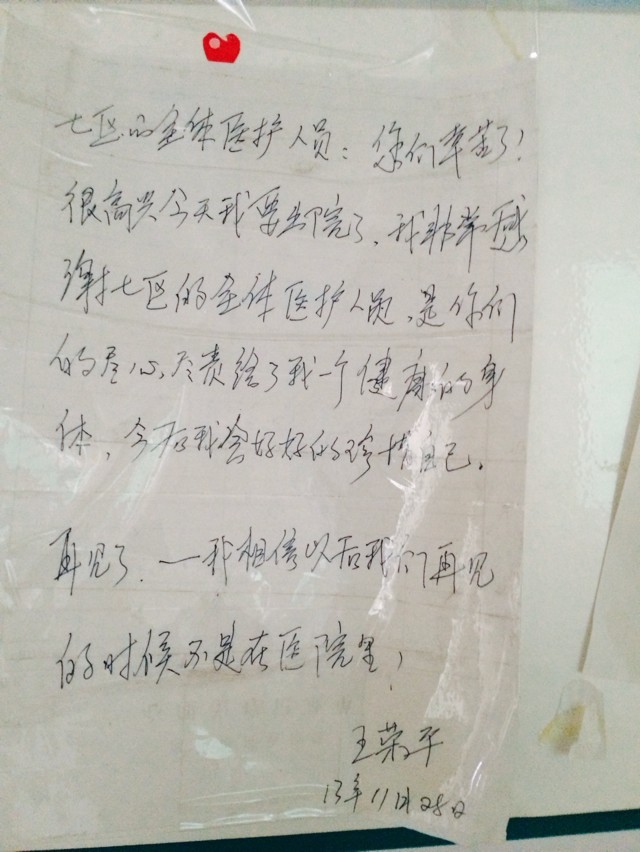 七区的全体医护人员：你们辛苦了！
很高兴今天我要出院了，我非常感
谢七区的全体医护人员，是你们
的尽心尽责给了我一个健康的身
体，今后我会好好的珍惜自己。
再见了.一我相信以后我们再见
的时候不是在医院里！
王荣平
13年11月28日